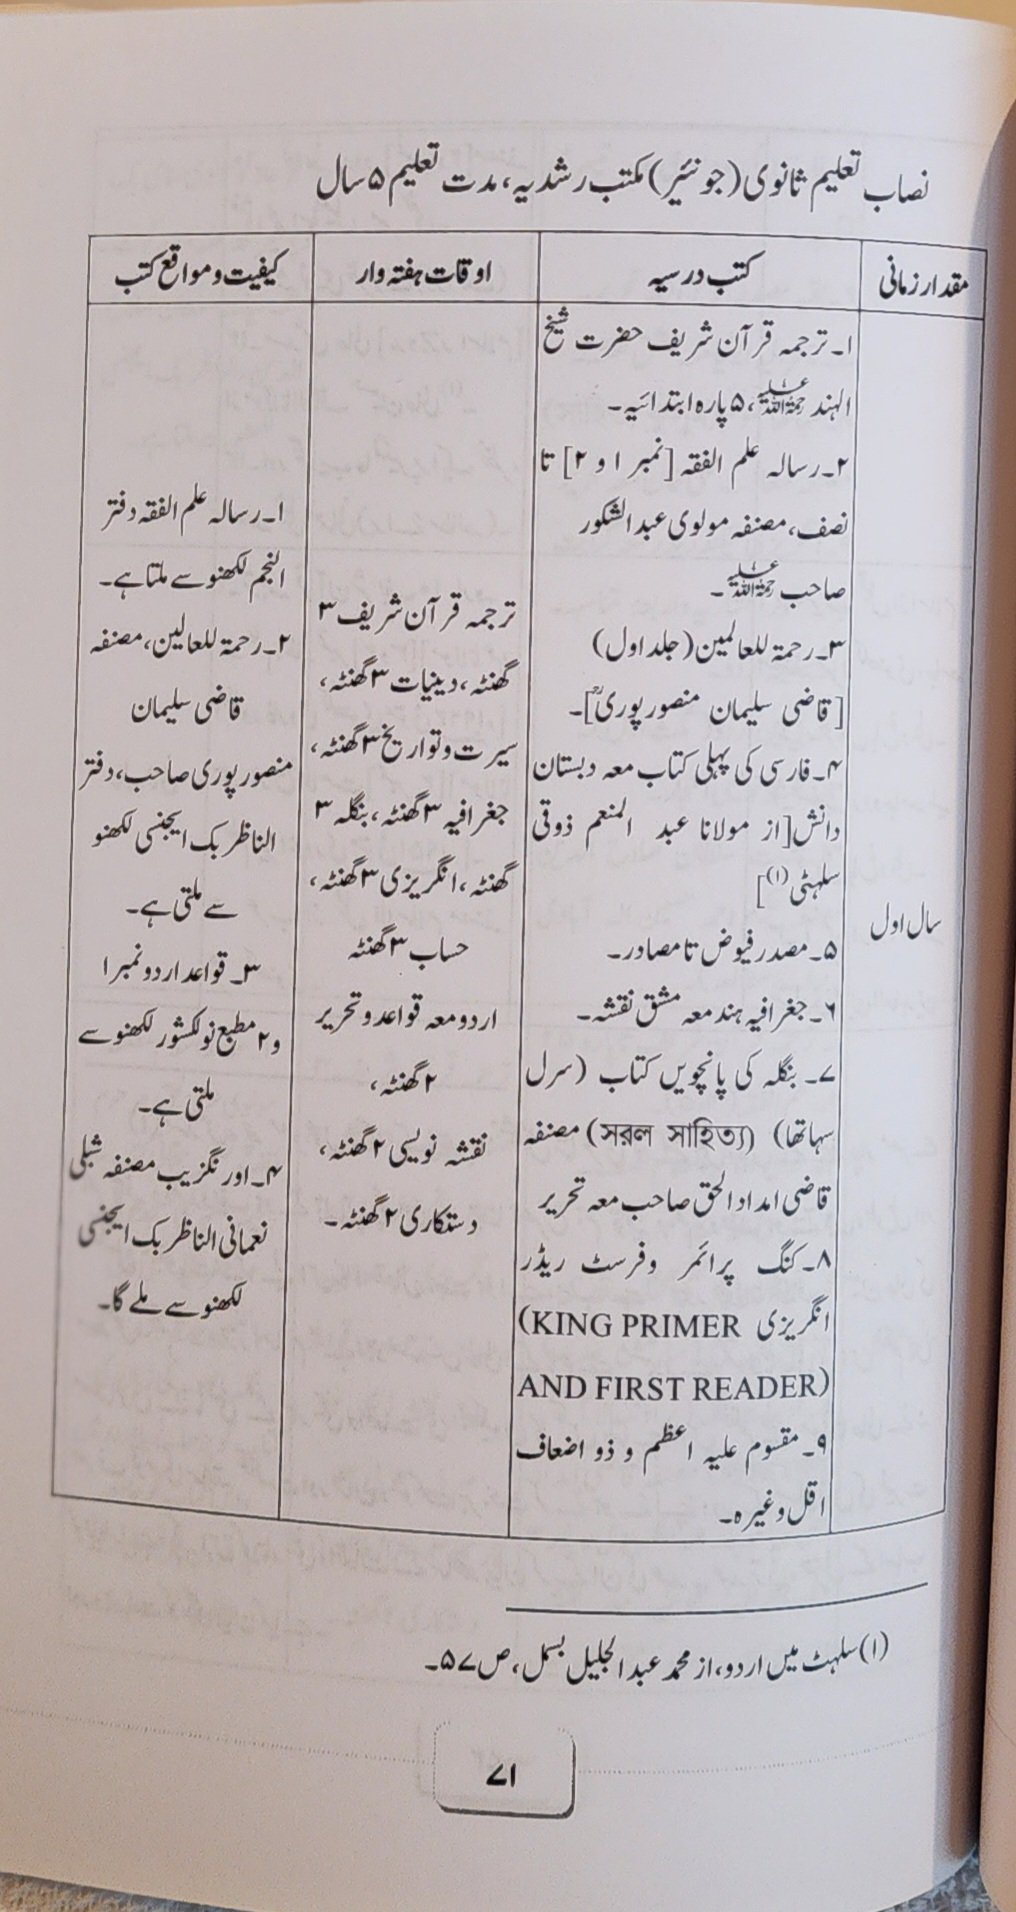 نصاب تعلیم ثانوی (جونئیر) مکتب رشدیہ، مدت تعلیم ۵ سال
مقدار زمانی
کتب درسیہ
اوقات ہفتہ وار
کیفیت و مواقع کتب
سال اول
۱۔ ترجمہ قرآن شریف حضرت شیخ
الہند رحمۃ اللہ علیہ، ۵ پارہ ابتدائیہ۔
۲۔ رسالہ علم الفقہ [نمبر ۱ و ۲] تا
نصف، مصنفہ مولوی عبدالشکور
صاحب رحمۃ اللہ علیہ۔
۳۔ رحمۃ للعالمین (جلد اول)
[قاضی سلیمان منصورپوریؒ]۔
۴۔ فارسی کی پہلی کتاب معہ دبستان
دانش [از مولانا عبد المنعم ذوقی
سلہٹی (۱)]
۵۔ مصدر فیوض تا مصادر۔
۶۔ جغرافیہ ہند معہ مشق نقشہ۔
۷۔ بنگلہ کی پانچویں کتاب (سرل
سہاتھا) (সরল সাহিত্য) مصنفہ
قاضی امداد الحق صاحب معہ تحریر
۸۔ کنگ پرائمر و فرسٹ ریڈر
انگریزی (KING PRIMER
AND FIRST READER)
۹۔ مقسوم علیہ اعظم و ذو اضعاف
اقل وغیرہ۔
ترجمہ قرآن شریف ۳
گھنٹہ، دینیات ۳ گھنٹہ،
سیرت و تواریخ ۳ گھنٹہ،
جغرافیہ ۳ گھنٹہ، بنگلہ ۳
گھنٹہ، انگریزی ۳ گھنٹہ،
حساب ۳ گھنٹہ
اردو معہ قواعد و تحریر
۲ گھنٹہ،
نقشہ نویسی ۲ گھنٹہ،
دستکاری ۲ گھنٹہ۔
۱۔ رسالہ علم الفقہ دفتر
النجم لکھنو سے ملتا ہے۔
۲۔ رحمۃ للعالمین، مصنفہ
قاضی سلیمان
منصورپوری صاحب، دفتر
الناظر بک ایجنسی لکھنو
سے ملتی ہے۔
۳۔ قواعد اردو نمبر ۱
و ۲ مطبع نولکشور لکھنو سے
ملتی ہے۔
۴۔ اورنگزیب مصنفہ شبلی
نعمانی الناظر بک ایجنسی
لکھنو سے ملے گا۔
(۱) سلہٹ میں اردو، از محمد عبدالجلیل بسمل، ص ۵۷۔
۷۱